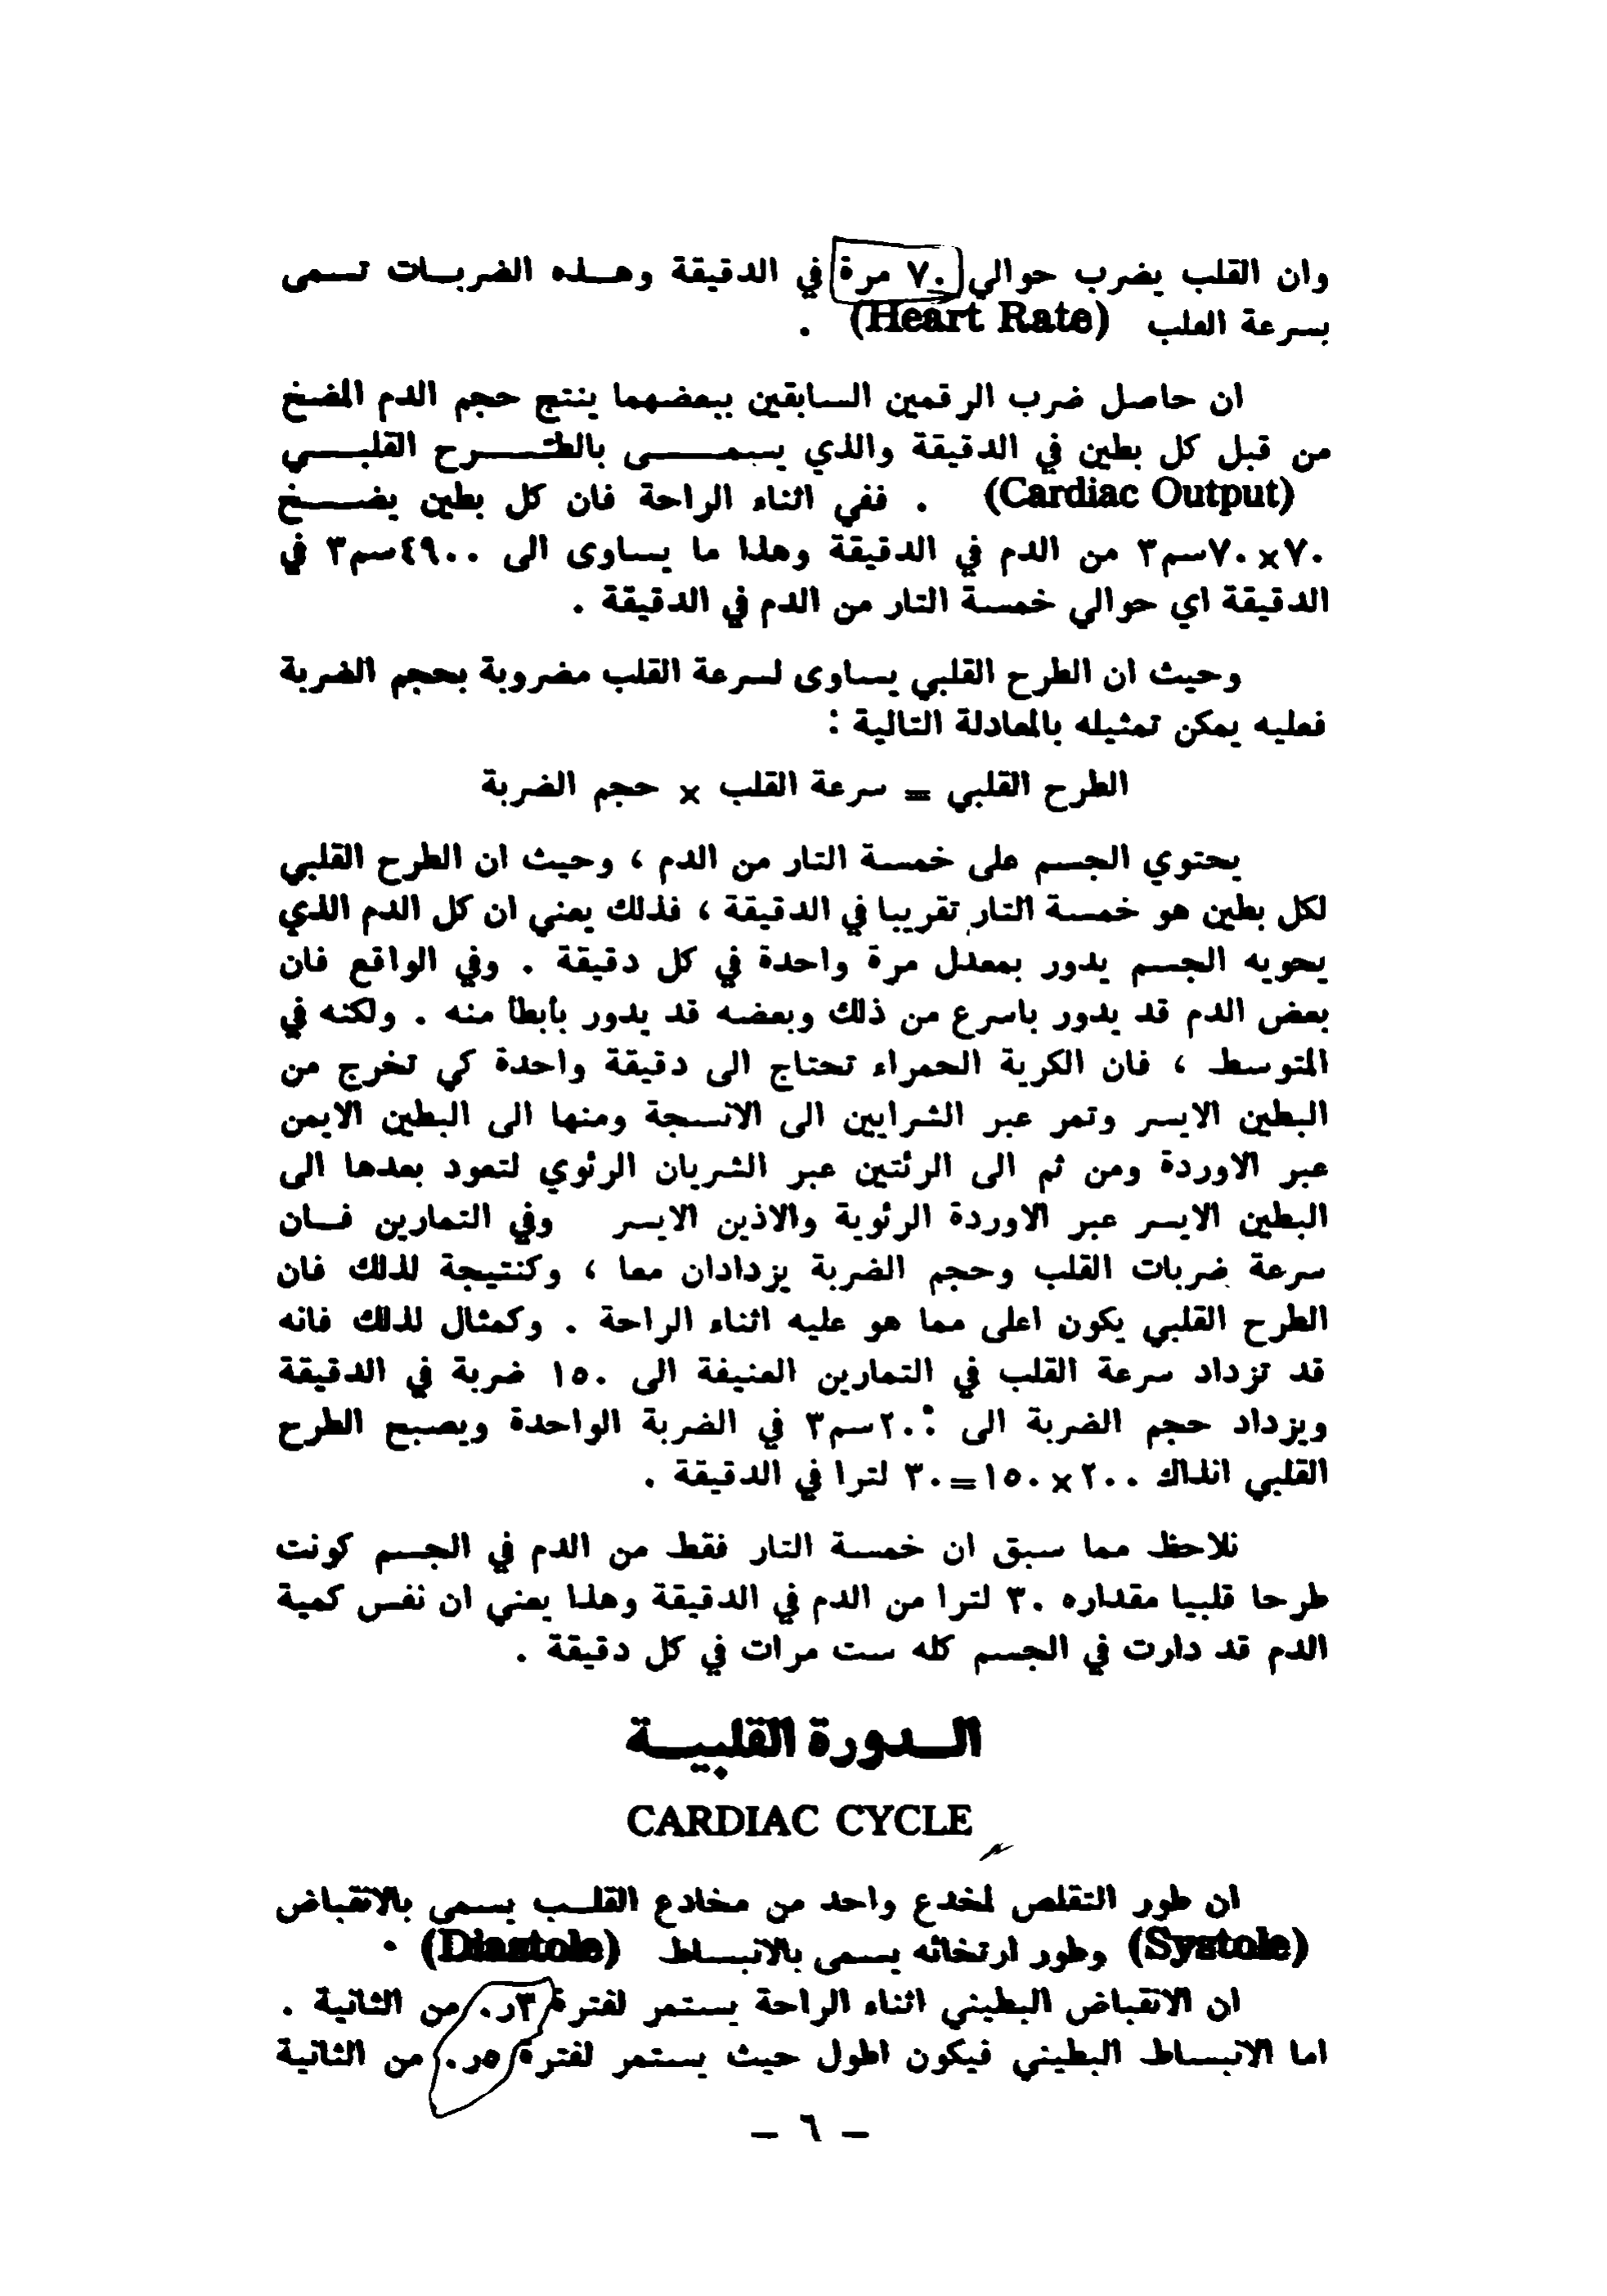 وان القلب يضرب حوالي ٧٠ مرة في الدقيقة وهـــذه الضربــات تــسمى
بسرعة القلب (Heart Rate) .
ان حاصل ضرب الرقمين السابقين ببعضهما ينتج حجم الدم المضخ
من قبل كل بطين في الدقيقة والذي يسمــــى بالطــــرح القلبـــي
(Cardiac Output) . ففي اثناء الراحة فان كل بطين يضـــخ
٧٠×٧٠سم٣ من الدم في الدقيقة وهذا ما يساوى الى ٤٩٠٠سم٣ في
الدقيقة اي حوالي خمسة التار من الدم في الدقيقة .
وحيث ان الطرح القلبي يساوى لسرعة القلب مضروبة بحجم الضربة
فعليه يمكن تمثيله بالمعادلة التالية :
الطرح القلبي = سرعة القلب × حجم الضربة
يحتوي الجسم على خمسة التار من الدم ، وحيث ان الطرح القلبي
لكل بطين هو خمسة التار تقريبا في الدقيقة ، فذلك يعني ان كل الدم الذي
يحويه الجسم يدور بمعدل مرة واحدة في كل دقيقة . وفي الواقع فان
بعض الدم قد يدور باسرع من ذلك وبعضه قد يدور بأبطأ منه . ولكنه في
المتوسط ، فان الكرية الحمراء تحتاج الى دقيقة واحدة كي تخرج من
البطين الايسر وتمر عبر الشرايين الى الانسجة ومنها الى البطين الايمن
عبر الاوردة ومن ثم الى الرئتين عبر الشريان الرئوي لتعود بعدها الى
البطين الايسر عبر الاوردة الرئوية والاذين الايسر وفي التمارين فــان
سرعة ضربات القلب وحجم الضربة يزدادان معا ، وكنتيجة لذلك فان
الطرح القلبي يكون اعلى مما هو عليه اثناء الراحة . وكمثال لذلك فانه
قد تزداد سرعة القلب في التمارين العنيفة الى ١٥٠ ضربة في الدقيقة
ويزداد حجم الضربة الى ٢٠٠سم٣ في الضربة الواحدة ويصبح الطرح
القلبي انذاك ٢٠٠×١٥٠=٣٠ لترا في الدقيقة .
نلاحظ مما سبق ان خمسة التار فقط من الدم في الجسم كونت
طرحا قلبيا مقداره ٣٠ لترا من الدم في الدقيقة وهذا يعني ان نفس كمية
الدم قد دارت في الجسم كله ست مرات في كل دقيقة .
الــدورة القلبيــة
CARDIAC CYCLE
ان طور التقلص لمخدع واحد من مخادع القلــب يسمى بالانقباض
(Systole) وطور ارتخائه يسمى بالانبســاط (Diastole) .
ان الانقباض البطيني اثناء الراحة يستمر لفترة ٣ر٠ من الثانية .
اما الانبساط البطيني فيكون اطول حيث يستمر لفترة ٥ر٠ من الثانية
– ٦ –